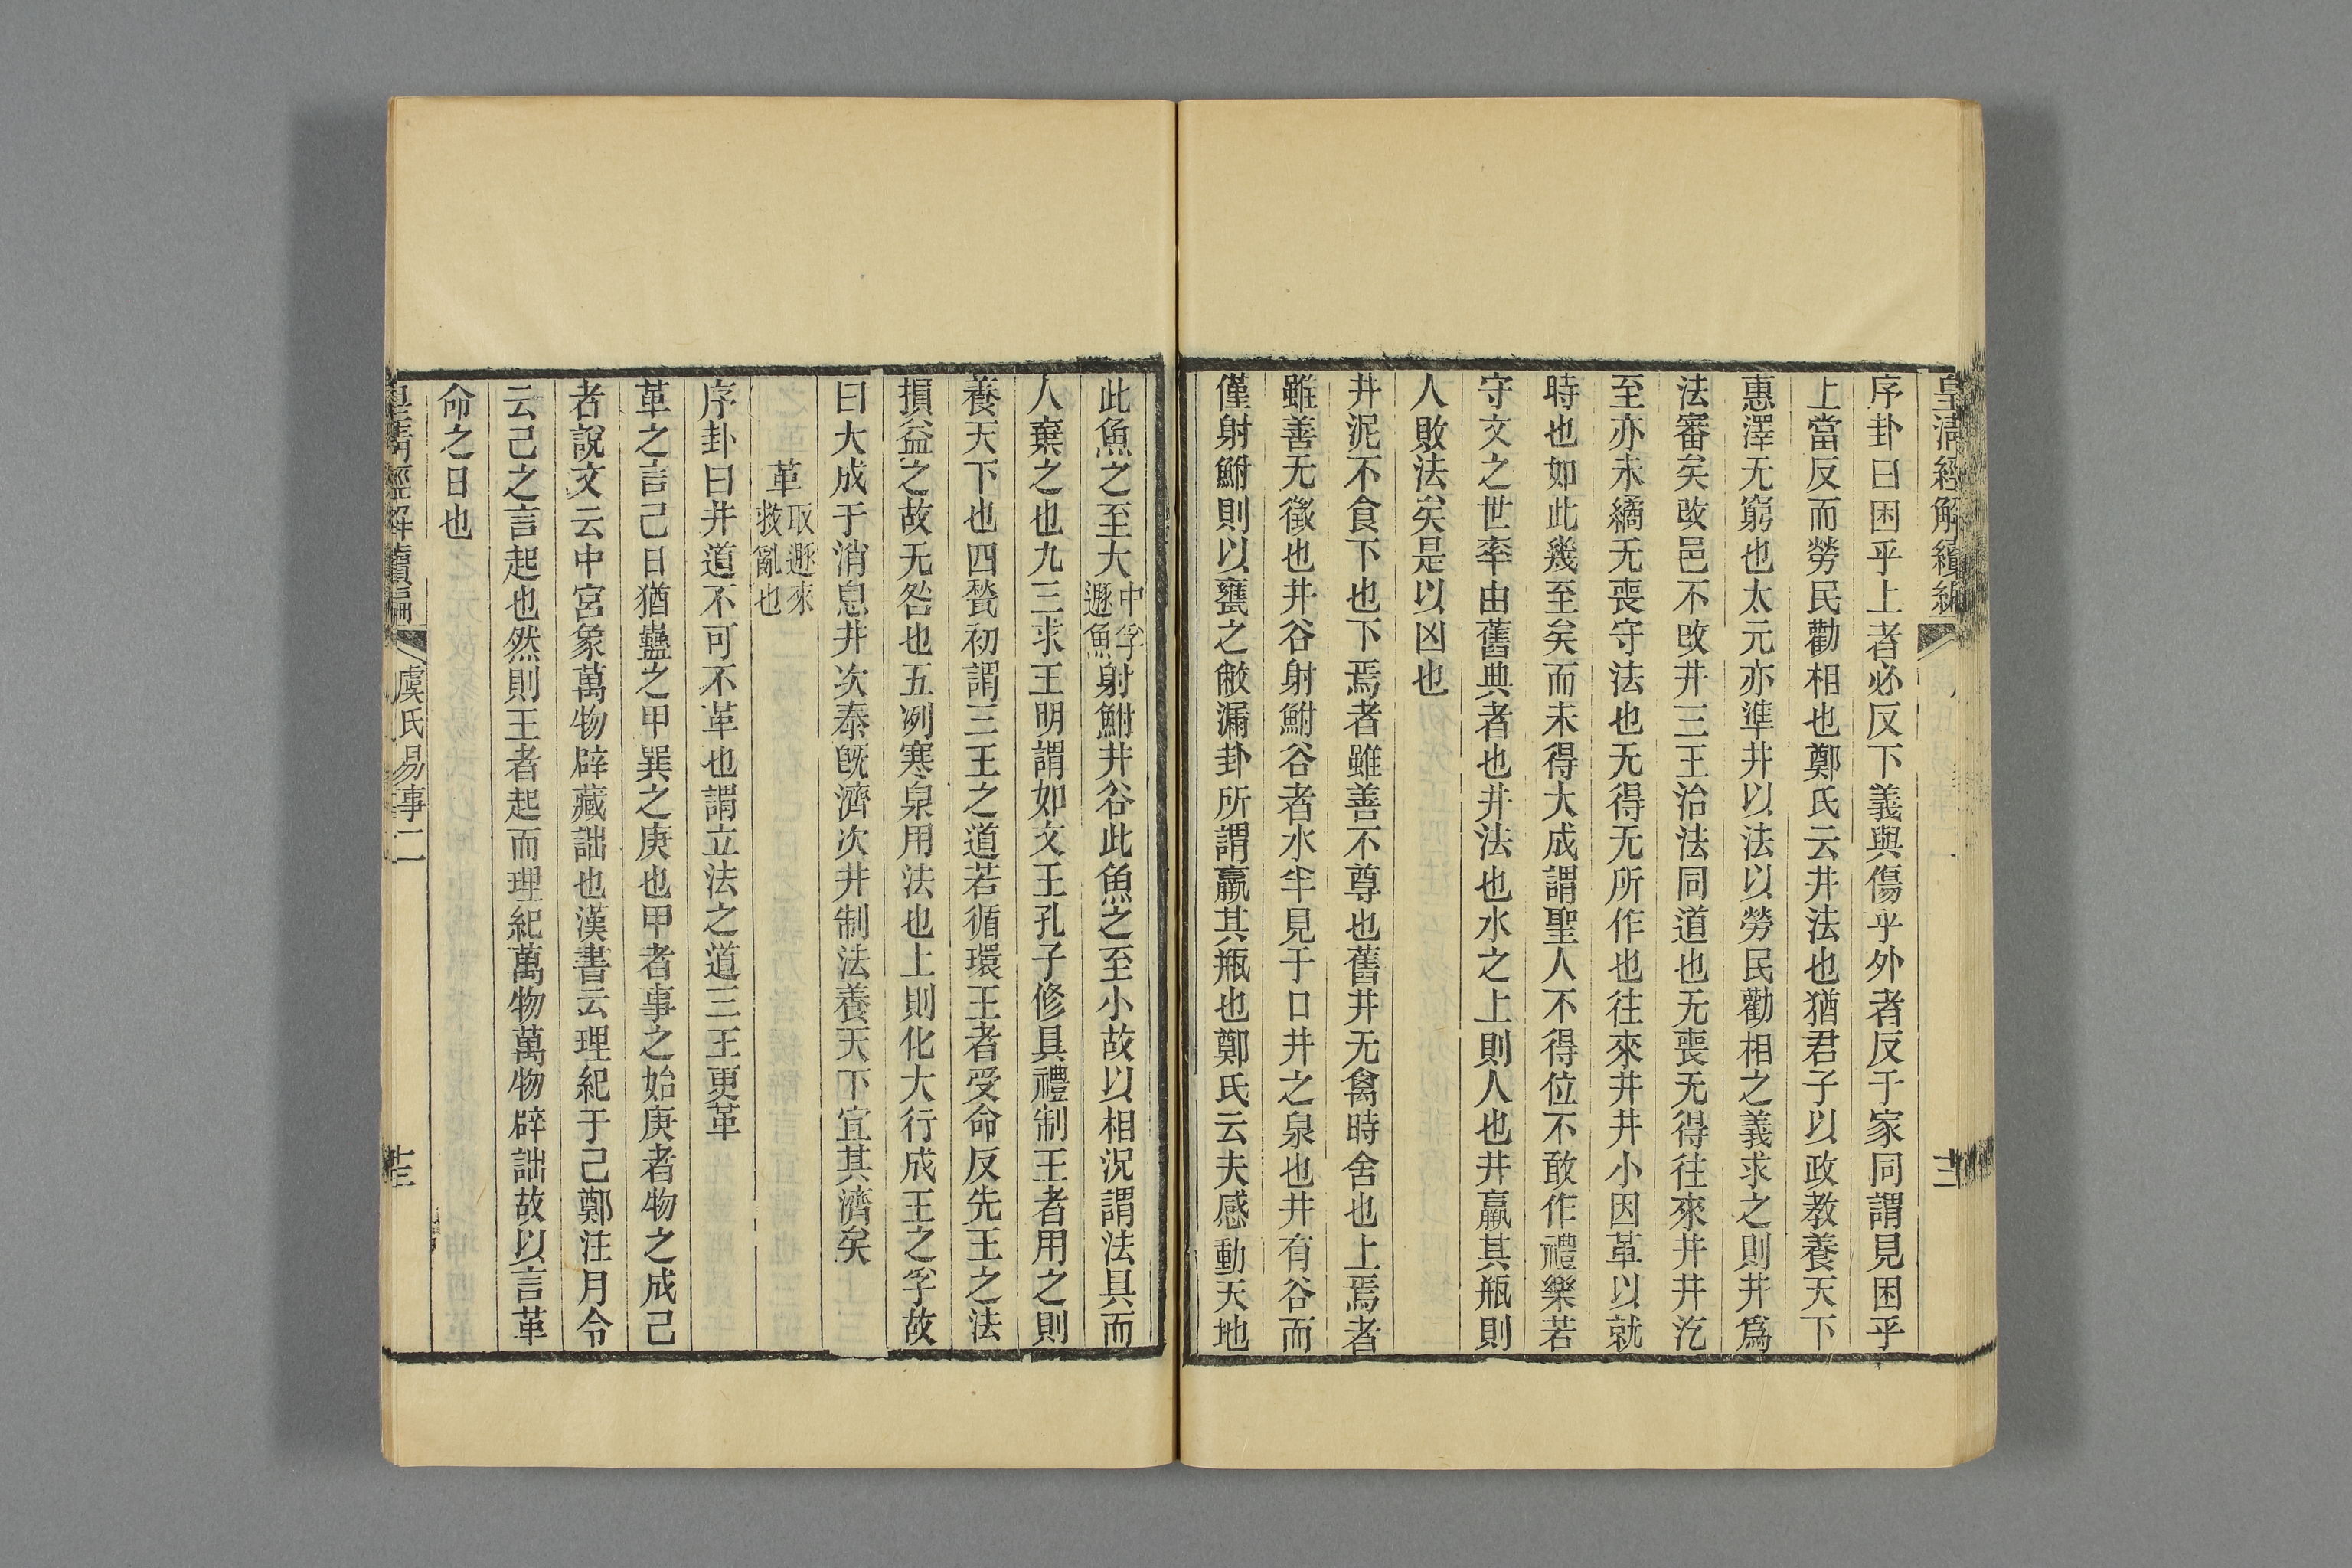 皇清經解續編
序卦曰困乎上者必反下義與傷乎外者反于家同謂見困乎
上當反而勞民勸相也鄭氏云井法也猶君子以政教養天下
惠澤无窮也太元亦準井以法以勞民勸相之義求之則井爲
法審矣改邑不改井三王治法同道也无喪无得往來井井汔
至亦未繘无喪守法也无得无所作也往來井井小因革以就
時也如此幾至矣而未得大成謂聖人不得位不敢作禮樂若
守文之世率由舊典者也井法也水之上則人也井羸其瓶則
人敗法矣是以凶也
井泥不食下也下焉者雖善不尊也舊井无禽時舍也上焉者
雖善无徵也井谷射鮒谷者水半見于口井之泉也井有谷而
僅射鮒則以甕之敝漏卦所謂羸其瓶也鄭氏云夫感動天地
此魚之至大中孚遯魚射鮒井谷此魚之至小故以相況謂法具而
人棄之也九三求王明謂如文王孔子修具禮制王者用之則
養天下也四甃初謂三王之道若循環王者受命反先王之法
損益之故无咎也五冽寒泉用法也上則化大行成王之孚故
曰大成于消息井次泰旣濟次井制法養天下宜其濟矣
革取遯來救亂也
序卦曰井道不可不革也謂立法之道三王更革
革之言己日猶蠱之甲巽之庚也甲者事之始庚者物之成己
者說文云中宮象萬物辟藏詘也漢書云理紀于己鄭注月令
云己之言起也然則王者起而理紀萬物萬物辟詘故以言革
命之日也
皇清經解續編 虞氏易事二